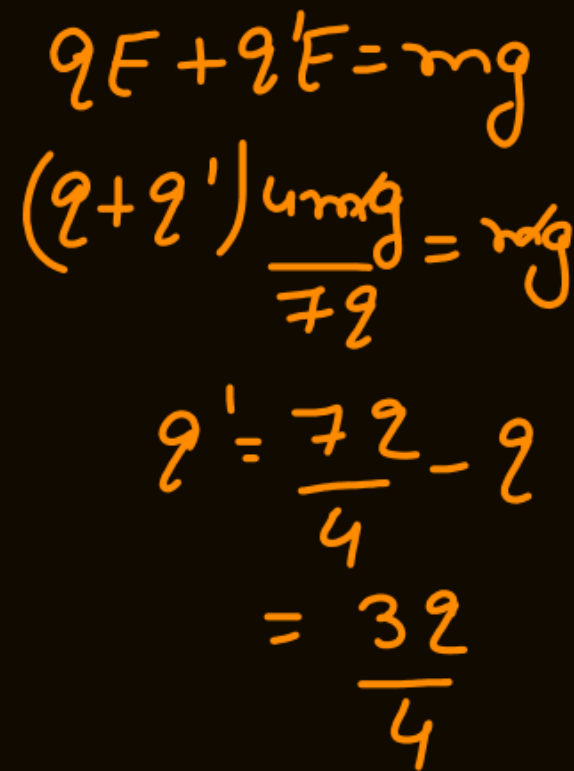 qE + q'E = mg
(q + q') 4mg/7q = mg
q' = 7q/4 - q
= 3q/4